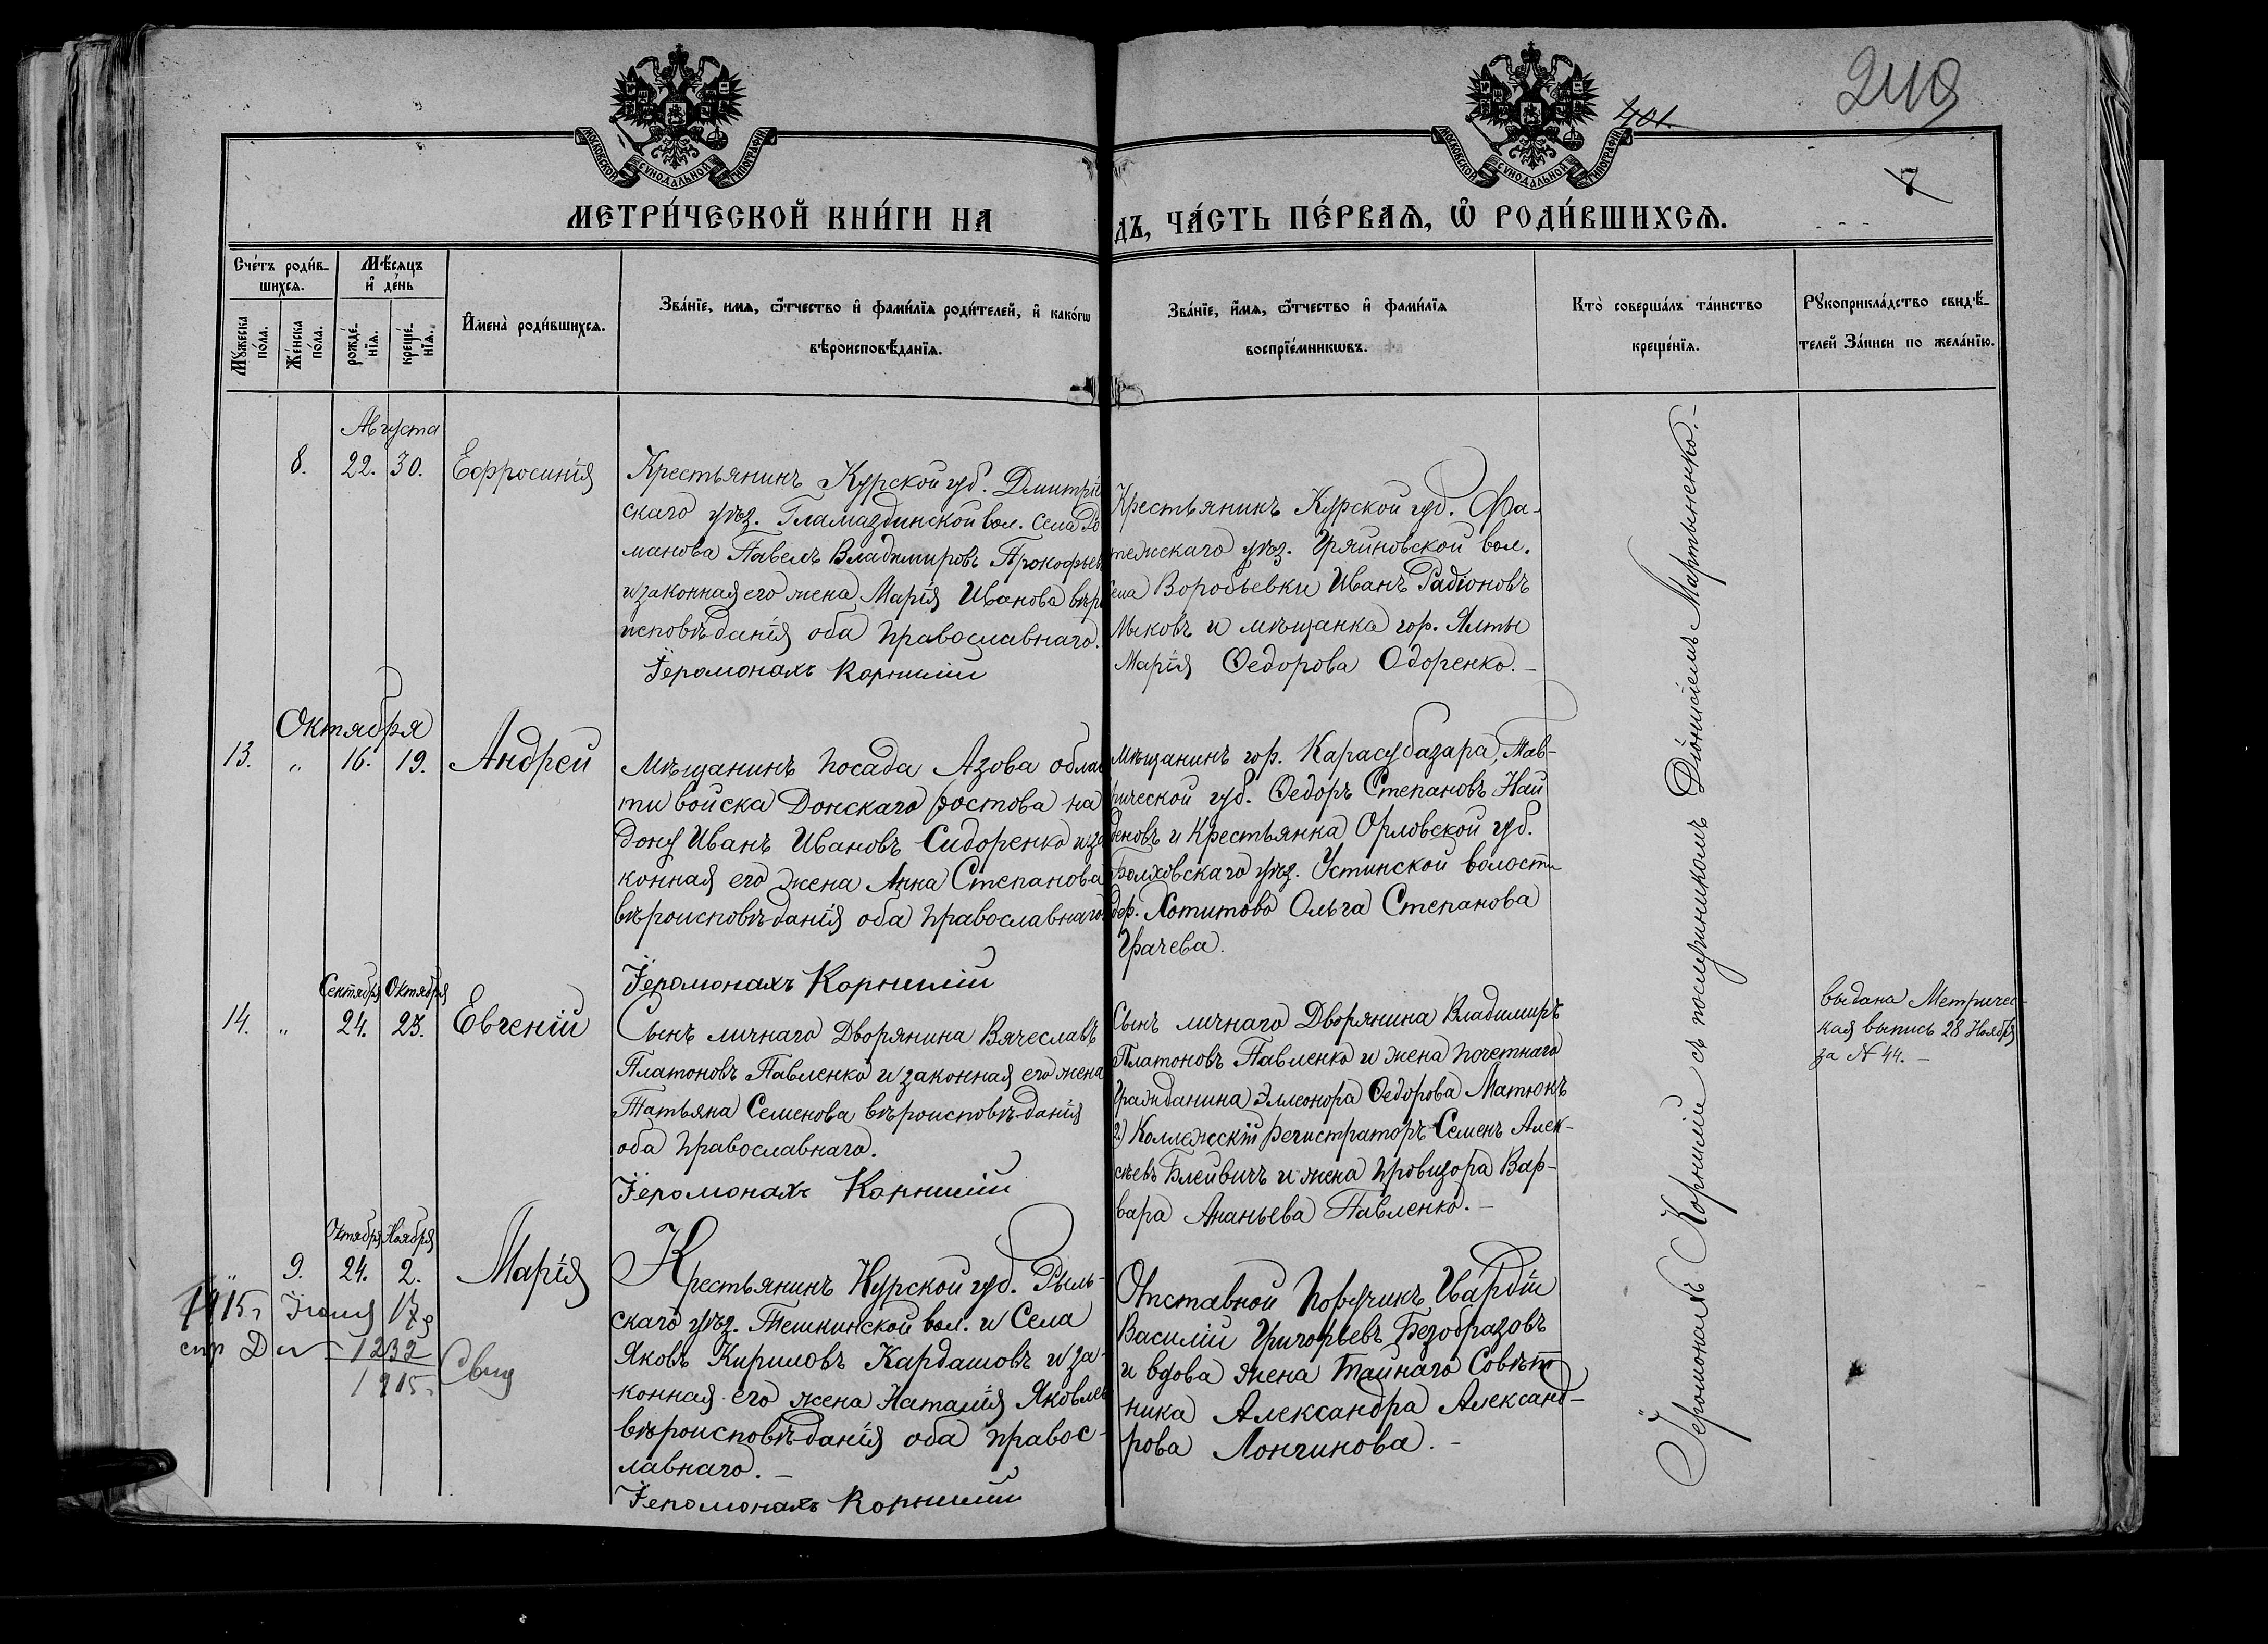 МОСКОВСКОЙ СѴНОДАЛЬНОЙ ТИПОГРАФІИ
МОСКОВСКОЙ СѴНОДАЛЬНОЙ ТИПОГРАФІИ
401.
249
7
МЕТРИ́ЧЕСКОЙ КНИ́ГИ НА
дъ, ЧА́СТЬ ПЕ́РВАЯ, Ѡ҆ РОДИ́ВШИХСЯ.
Сче́тъ роди́в-
шихся.
Мꙋжеска
по́ла.
Же́нска
по́ла.
Мѣ́сяцъ
и҆ де́нь
рожде́-
нїя.
креще́-
нїя.
И҆мена̀ роди́вшихся.
Зва́нїе, имя, ѻ҆́тчество и҆ фами́лїя роди́телей, и҆ како́гѡ
вѣроисповѣ́данїя.
Зва́нїе, и҆́мя, ѻ҆́тчество и҆ фами́лїя
воспрїе́мникѡвъ.
Кто̀ соверша́лъ та́инство
креще́нїя.
Рꙋкоприкла́дство свидѣ́-
телей За́писи по жела́нїю.
Августа
8. 22. 30. Ефросинія
Крестьянинъ Курской губ. Дмитріе
скаго уѣз. Гламаздинской вол. села До
манова Павелъ Владимировъ Прокофьев
и законная его жена Марія Иванова вѣро
исповѣданія оба православнаго.
Іеромонахъ Корнилій
Крестьянинъ Курской губ. Фа-
тежскаго уѣз. вол.
села Воробьевки Иванъ Радіоновъ
Лыковъ и мѣщанка гор. Ялты
Марія Ѳедорова Одоренко. –
Октября
13. " 16. 19. Андрей
Мѣщанинъ посада Азова облас
ти войска Донскаго Ростова на
дону Иванъ Ивановъ Сидоренко и за
конная его жена Анна Степанова
вѣроисповѣданія оба православнаго
Іеромонахъ Корнилій
Мѣщанинъ гор. Карасубазара, Тав-
рической губ. Ѳедоръ Степановъ Най
деновъ и Крестьянка Орловской губ.
Болховскаго уѣз. Устинской волости
дер. Хотитово Ольга Степанова
Грачева.
Сентября Октября
14. " 24. 23. Евгеній
Сынъ личнаго Дворянина Вячеславъ
Платоновъ Павленко и законная его жена
Татьяна Семенова вѣроисповѣданія
оба православнаго.
Іеромонахъ Корнилій
Сынъ личнаго Дворянина Владимиръ
Платоновъ Павленко и жена почетнаго
Гражданина Элеонора Ѳедорова Матюкъ
2) Коллежскій Регистраторъ Семенъ Алек-
сѣевъ Блейвичъ и жена провизора Вар-
вара Ананьева Павленко. –
выдана Метричес-
кая выпись 28 Ноября
за N 44. –
Октября Ноября
" 9. 24. 2. Марія
1915 г Іюля 17 д
спр Д 1232
1915 г Свид
Крестьянинъ Курской губ. Рыль-
скаго уѣз. Теткинской вол. и Села
Яковъ Кириловъ Кардашовъ и за-
конная его жена Наталія Яковлев
вѣроисповѣданія оба правос-
лавнаго. –
Іеромонахъ Корнилій
Отставной поручикъ Гвардіи
Василій Григорьевъ Безобразовъ
и вдова жена Тайнаго Совѣт
ника Александра Александ-
рова Лонгинова. –
Іеромонахъ Корнилій съ послушникомъ Діонисіемъ Мартыненко. –